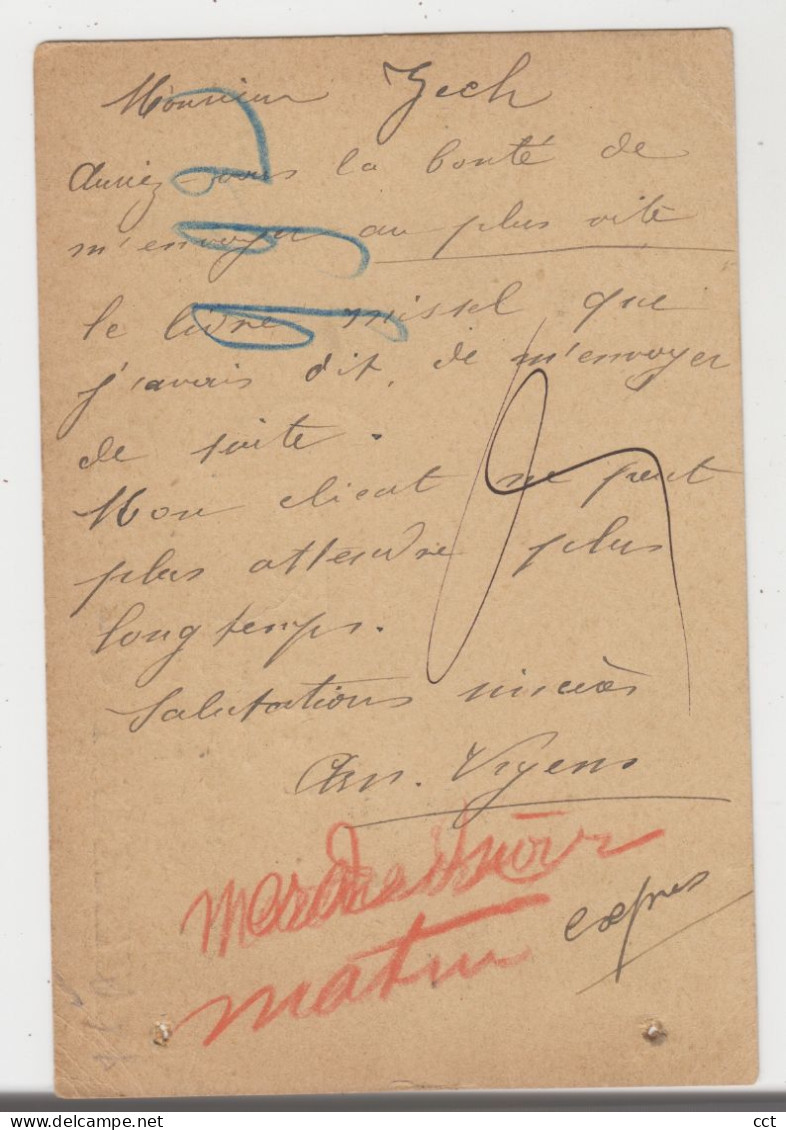 Monsieur Zech
Auriez vous la bonté de
m'envoyer au plus vite
le livre missel que
j'avais dit, de m'envoyer
de suite.
Mon client ne peut
plus attendre plus
longtemps.
Salutations sincères
Vigens
matin
expres
cct